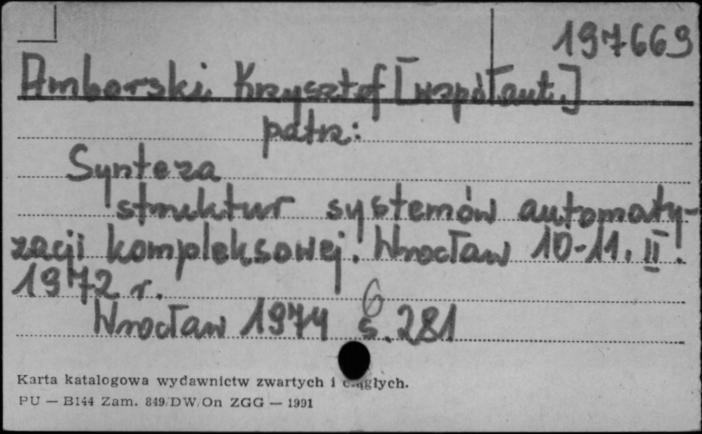 197669
Amborski Krzysztof [współaut.]
patrz:
Synteza
struktur systemów automaty-
zacji kompleksowej. Wrocław 10-11. II.
1972 r.
6
Wrocław 1974 s. 281
Karta katalogowa wydawnictw zwartych i ciągłych.
PU — B144 Zam. 849/DW/On ZGG — 1991